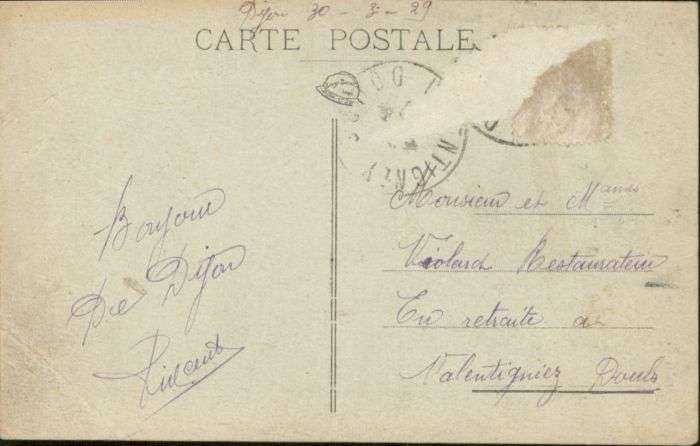 Dijon 30 - 3 - 29
CARTE POSTALE
Bonjour
De Dijon
Vincent
Monsieur et Mames
Violard Restaurateur
En retraite a
Valentigniez Doubs